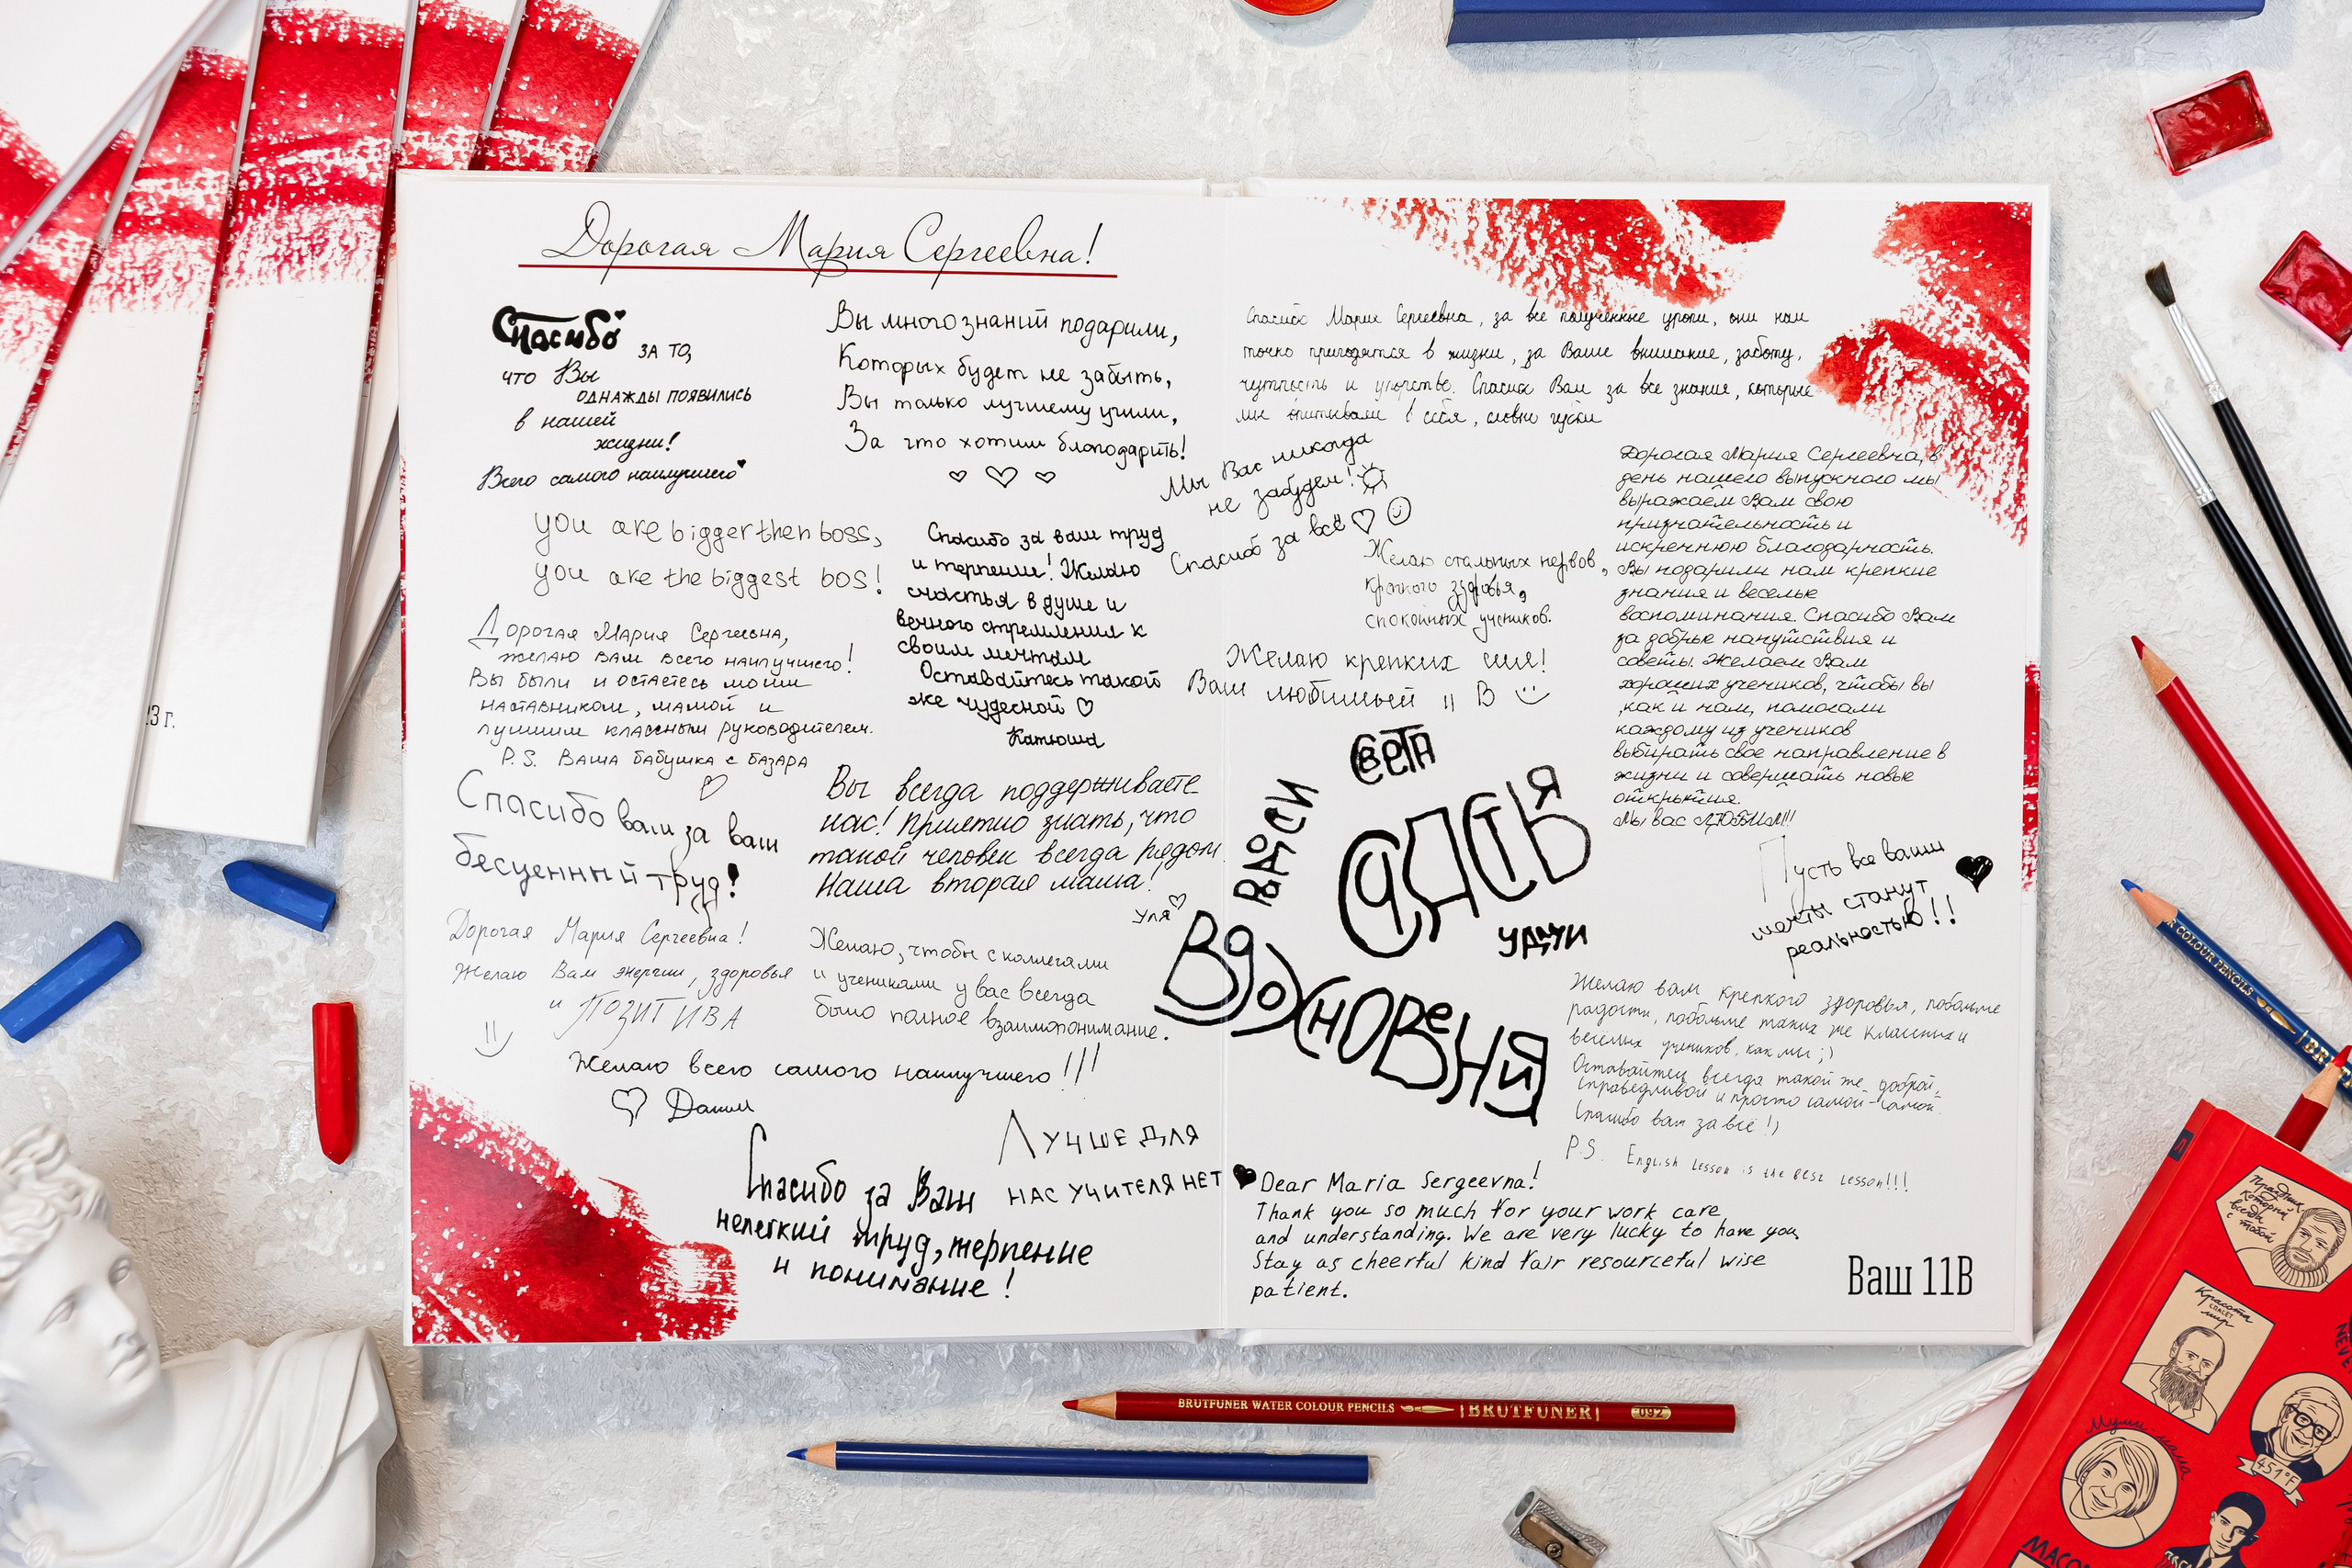 Дорогая Мария Сергеевна!
Спасибо ЗА ТО,
что Вы
ОДНАЖДЫ ПОЯВИЛИСЬ
в нашей
жизни!
Всего самого наилучшего
Вы много знаний подарили,
Которых будет не забыть,
Вы только лучшему учили,
За что хотим благодарить!
you are bigger then boss,
you are the biggest bos!
Спасибо за ваш труд
и терпение! Желаю
счастья в душе и
вечного стремления к
своим мечтам
Оставайтесь такой
же чудесной
Катюша
Дорогая Мария Сергеевна,
желаю вам всего наилучшего!
Вы были и остаетесь моим
наставником, мамой и
лучшим классным руководителем.
P.S. Ваша бабушка с базара
Спасибо вам за ваш
бесценный труд!
Вы всегда поддерживаете
нас! Приятно знать, что
такой человек всегда рядом.
Наша вторая мама!
Уля
Дорогая Мария Сергеевна!
Желаю Вам энергии, здоровья
и ПОЗИТИВА
Желаю, чтобы с коллегами
и учениками у вас всегда
было полное взаимопонимание.
Желаю всего самого наилучшего!!!
Даша
ЛУЧШЕ ДЛЯ
НАС УЧИТЕЛЯ НЕТ
Спасибо за Ваш
нелегкий труд, терпение
и понимание!
Спасибо Мария Сергеевна, за все полученные уроки, они нам
точно пригодятся в жизни, за Ваше внимание, заботу,
чуткость и упорство. Спасибо Вам за все знания, которые
мы впитывали в себя, словно губки
Мы Вас никогда
не забудем!
Спасибо за всё
Желаю стальных нервов,
крепкого здоровья,
спокойных учеников.
Желаю крепких сил!
Ваш любимый 11 В
Дорогая Мария Сергеевна, в
день нашего выпускного мы
выражаем Вам свою
признательность и
искреннюю благодарность.
Вы подарили нам крепкие
знания и веселые
воспоминания. Спасибо Вам
за добрые напутствия и
советы. Желаем Вам
хороших учеников, чтобы вы
,как и нам, помогали
каждому из учеников
выбирать свое направление в
жизни и совершать новые
открытия.
Мы вас ЛЮБИМ!!
СВЕТА
СЧАСТЬЯ
УДАЧИ
ВДОХНОВЕНИЯ
Пусть все ваши
мечты станут
реальностью!!
Желаю вам крепкого здоровья, побольше
радости, побольше таких же классных и
весёлых учеников, как мы ;)
Оставайтесь всегда такой же доброй,
справедливой и просто самой-самой.
Спасибо вам за всё!)
P.S. English lesson is the best lesson!!!
Dear Maria Sergeevna!
Thank you so much for your work care
and understanding. We are very lucky to have you,
Stay as cheerful kind fair resourceful wise
patient.
Ваш 11В
23 г.
COLOUR PENCILS
BRUTFUNER WATER COLOUR PENCILS BRUTFUNER 092
Праздник,
который
всегда
с тобой
Красота
спасет
мир
Муми-мама
451°F